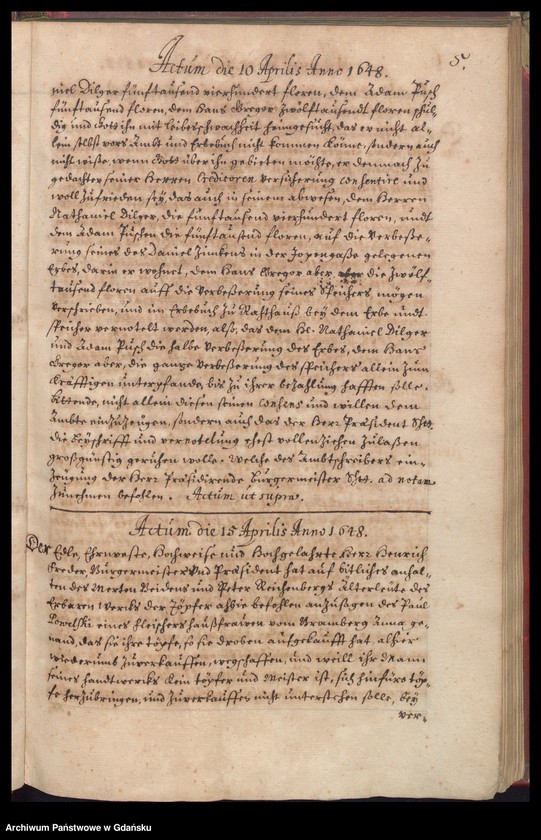 5.
Actum die 10 Aprilis Anno 1648.
niel Dilger fünftausend vierhundert floren, dem Adam Püsch
fünftausend floren, dem Hans Gregor zwölftausendt floren schül-
dig und Gott ihn mit leibes schwachheit heimgesucht, das er nicht al-
lein selbst vors Ambt und Erbebuch nicht kommen könne, sondern auch
nicht wiste, wenn Gott über ihn gebieten möchte, er dennoch zu
gedachter seiner Herren Creditoren versicherung consentire und
woll zufrieden sey, das auch in seinem abwesen, dem Herren
Nathaniel Dilger, die fünftausend vierhundert floren, undt
dem Adam Püschen die fünftausend floren, auf die verbeße-
rung seines des Daniel Zimbens in der Jopengaße gelegenen
Erbes, darin er wohnet, dem Hans Gregor aber die zwölf-
tausend floren auff die verbeßerung seines Speichers, mögen
verschrieben, und im Erbebuch zu Rahthauß bey dem Erbe undt
Speicher vernotelt werden, also, das dem Hr. Nathaniel Dilger
und Adam Püsch die halbe verbeßerung des Erbes, dem Hans
Gregor aber, die gantze verbeßerung des Speichers allein zum
kräfftigen unterpfande, bis zu ihrer bezahlung hafften solle.
Bittende, nicht allein diesen seinen consens und willen dem
Ambte einzuzeugen, sondern auch das der Herr Præsident
die beyschrifft und vernotelung vollenziehen zulaßen
großgünstig geruhen wolle. Welche des Ambtschreibers ein-
zeugung der Herr Præsidirende Bürgermeister ad notam
zunehmen befohlen. Actum ut supra.
Actum die 15 Aprilis Anno 1648.
Der Edle, Ehrnveste, Hochweise und Hochgelahrte Herr Henrich
Freder, Bürgermeister und Præsident hat auf bitliches anhal-
ten des Merten Neidens und Peter Reichenbergs Älterleute des
Erbaren Wercks der Töpfer alhie befohlen anzufügen des Paul
eines fleischers haußfrawen vom Anna ge-
nand, das sie ihre töpfe, so sie droben aufgekaufft hat, alhier
wiederumb zuverkauffen, wegschaffen, und weill ihr Mann
seines handtwercks kein töpfer und Meister ist, sich hinfüro töp-
fe herzubringen, und zuverkauffen nicht unterstehen solle, bey
ver-
Archiwum Państwowe w Gdańsku